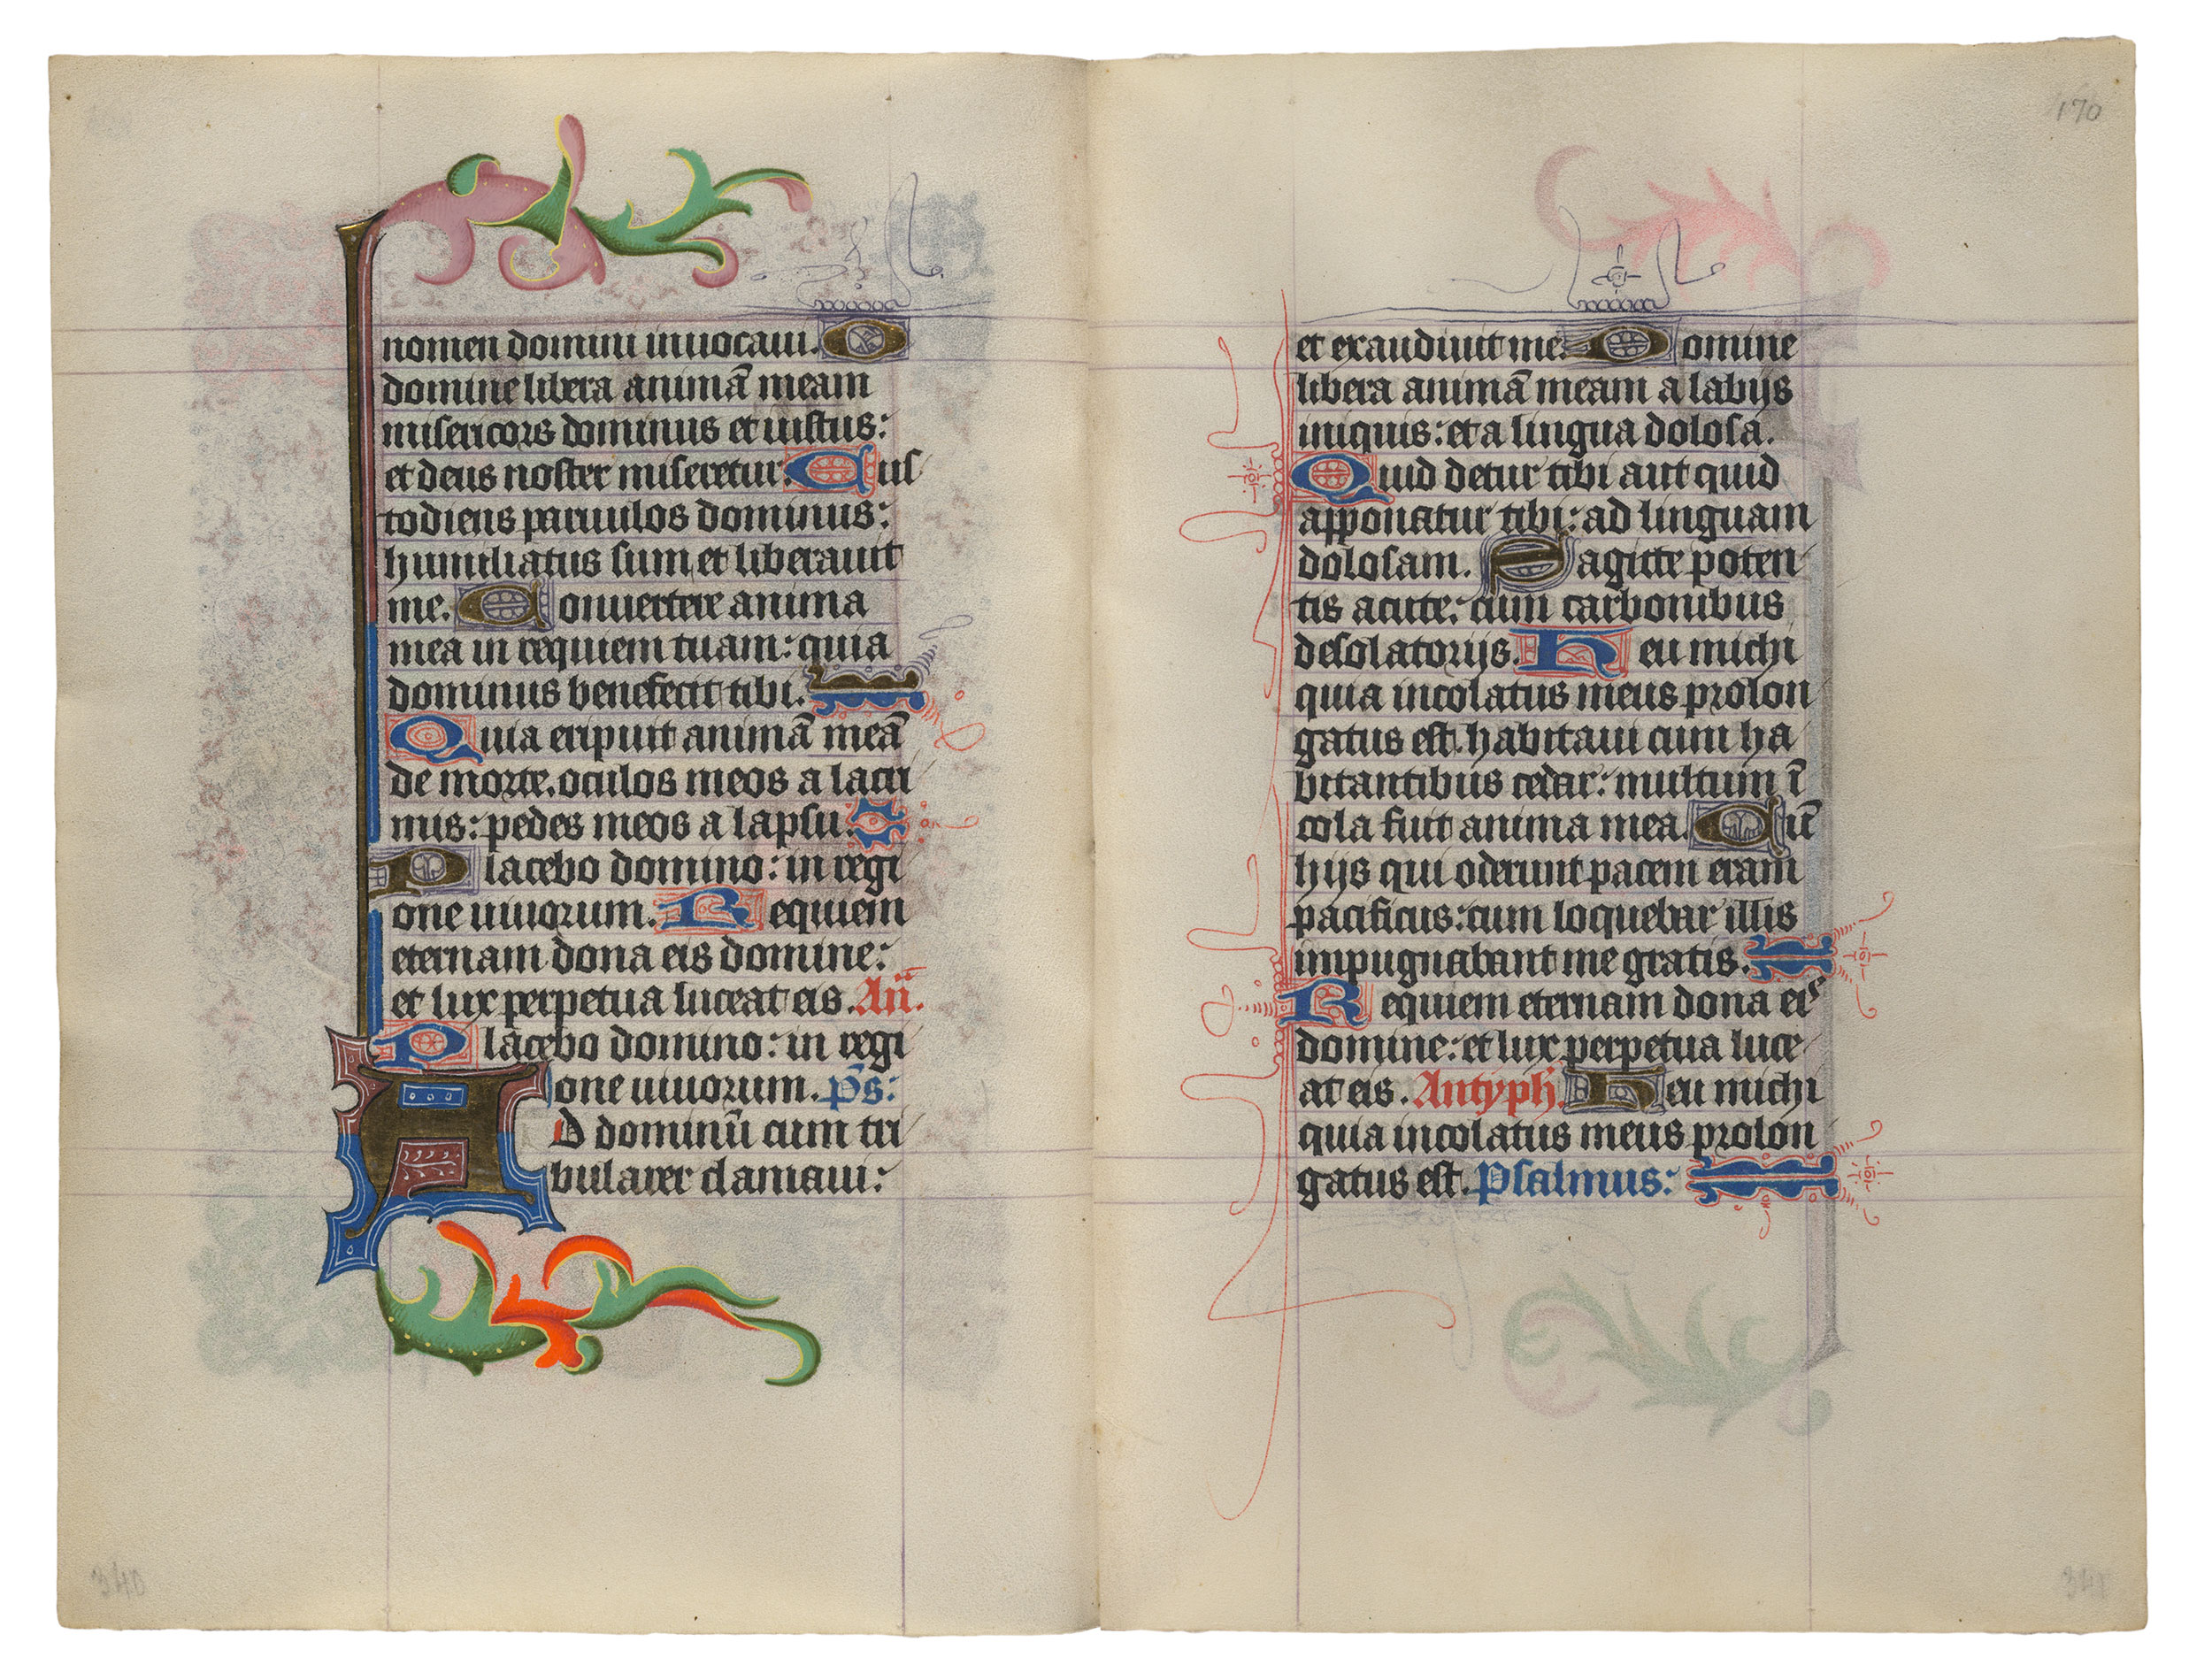 nomen domini inuocaui. O
domine libera animā meam
misericors dominus et iustus:
et deus noster miseretur. Cus
todiens paruulos dominus:
humiliatus sum et liberauit
me. Conuertere anima
mea in requiem tuam: quia
dominus benefecit tibi.
Quia eripuit animā meā
de morte. oculos meos a lacri
mis: pedes meos a lapsu.
Placebo domino: in regi
one uiuorum. Requiem
eternam dona eis domine:
et lux perpetua luceat eis. An̄.
Placebo domino: in regi
one uiuorum. p̄s:
AD dominū cum tri
bularer clamaui:
170
et exaudiuit me. Domine
libera animā meam a labijs
iniquis: et a lingua dolosa.
Quid detur tibi aut quid
apponatur tibi: ad linguam
dolosam. Sagitte poten
tis acute: cum carbonibus
desolatorijs. Heu michi
quia incolatus meus prolon
gatus est. habitaui cum ha
bitantibus cedar: multum ī
cola fuit anima mea. Cū
hijs qui oderunt pacem eram
pacificus: cum loquebar illis
impugnabant me gratis.
Requiem eternam dona eis
domine: et lux perpetua luce
at eis. Antyph. Heu michi
quia incolatus meus prolon
gatus est. Psalmus:
340
341